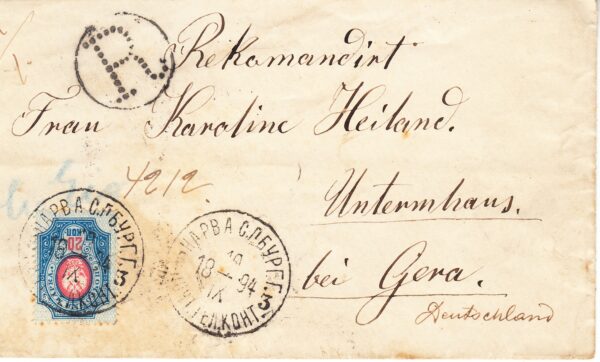 R
Rekomandirt
Frau Karoline Heiland.
4212.
Untermhaus.
bei Gera.
Deutschland
НАРВА С.П.БУРГ.Г.
19
18 94
IX
ТЕЛ.КОНТ.
3
НАРВА С.П.БУРГ.Г.
18 94
IX
КОНТ.
3
20
КОП